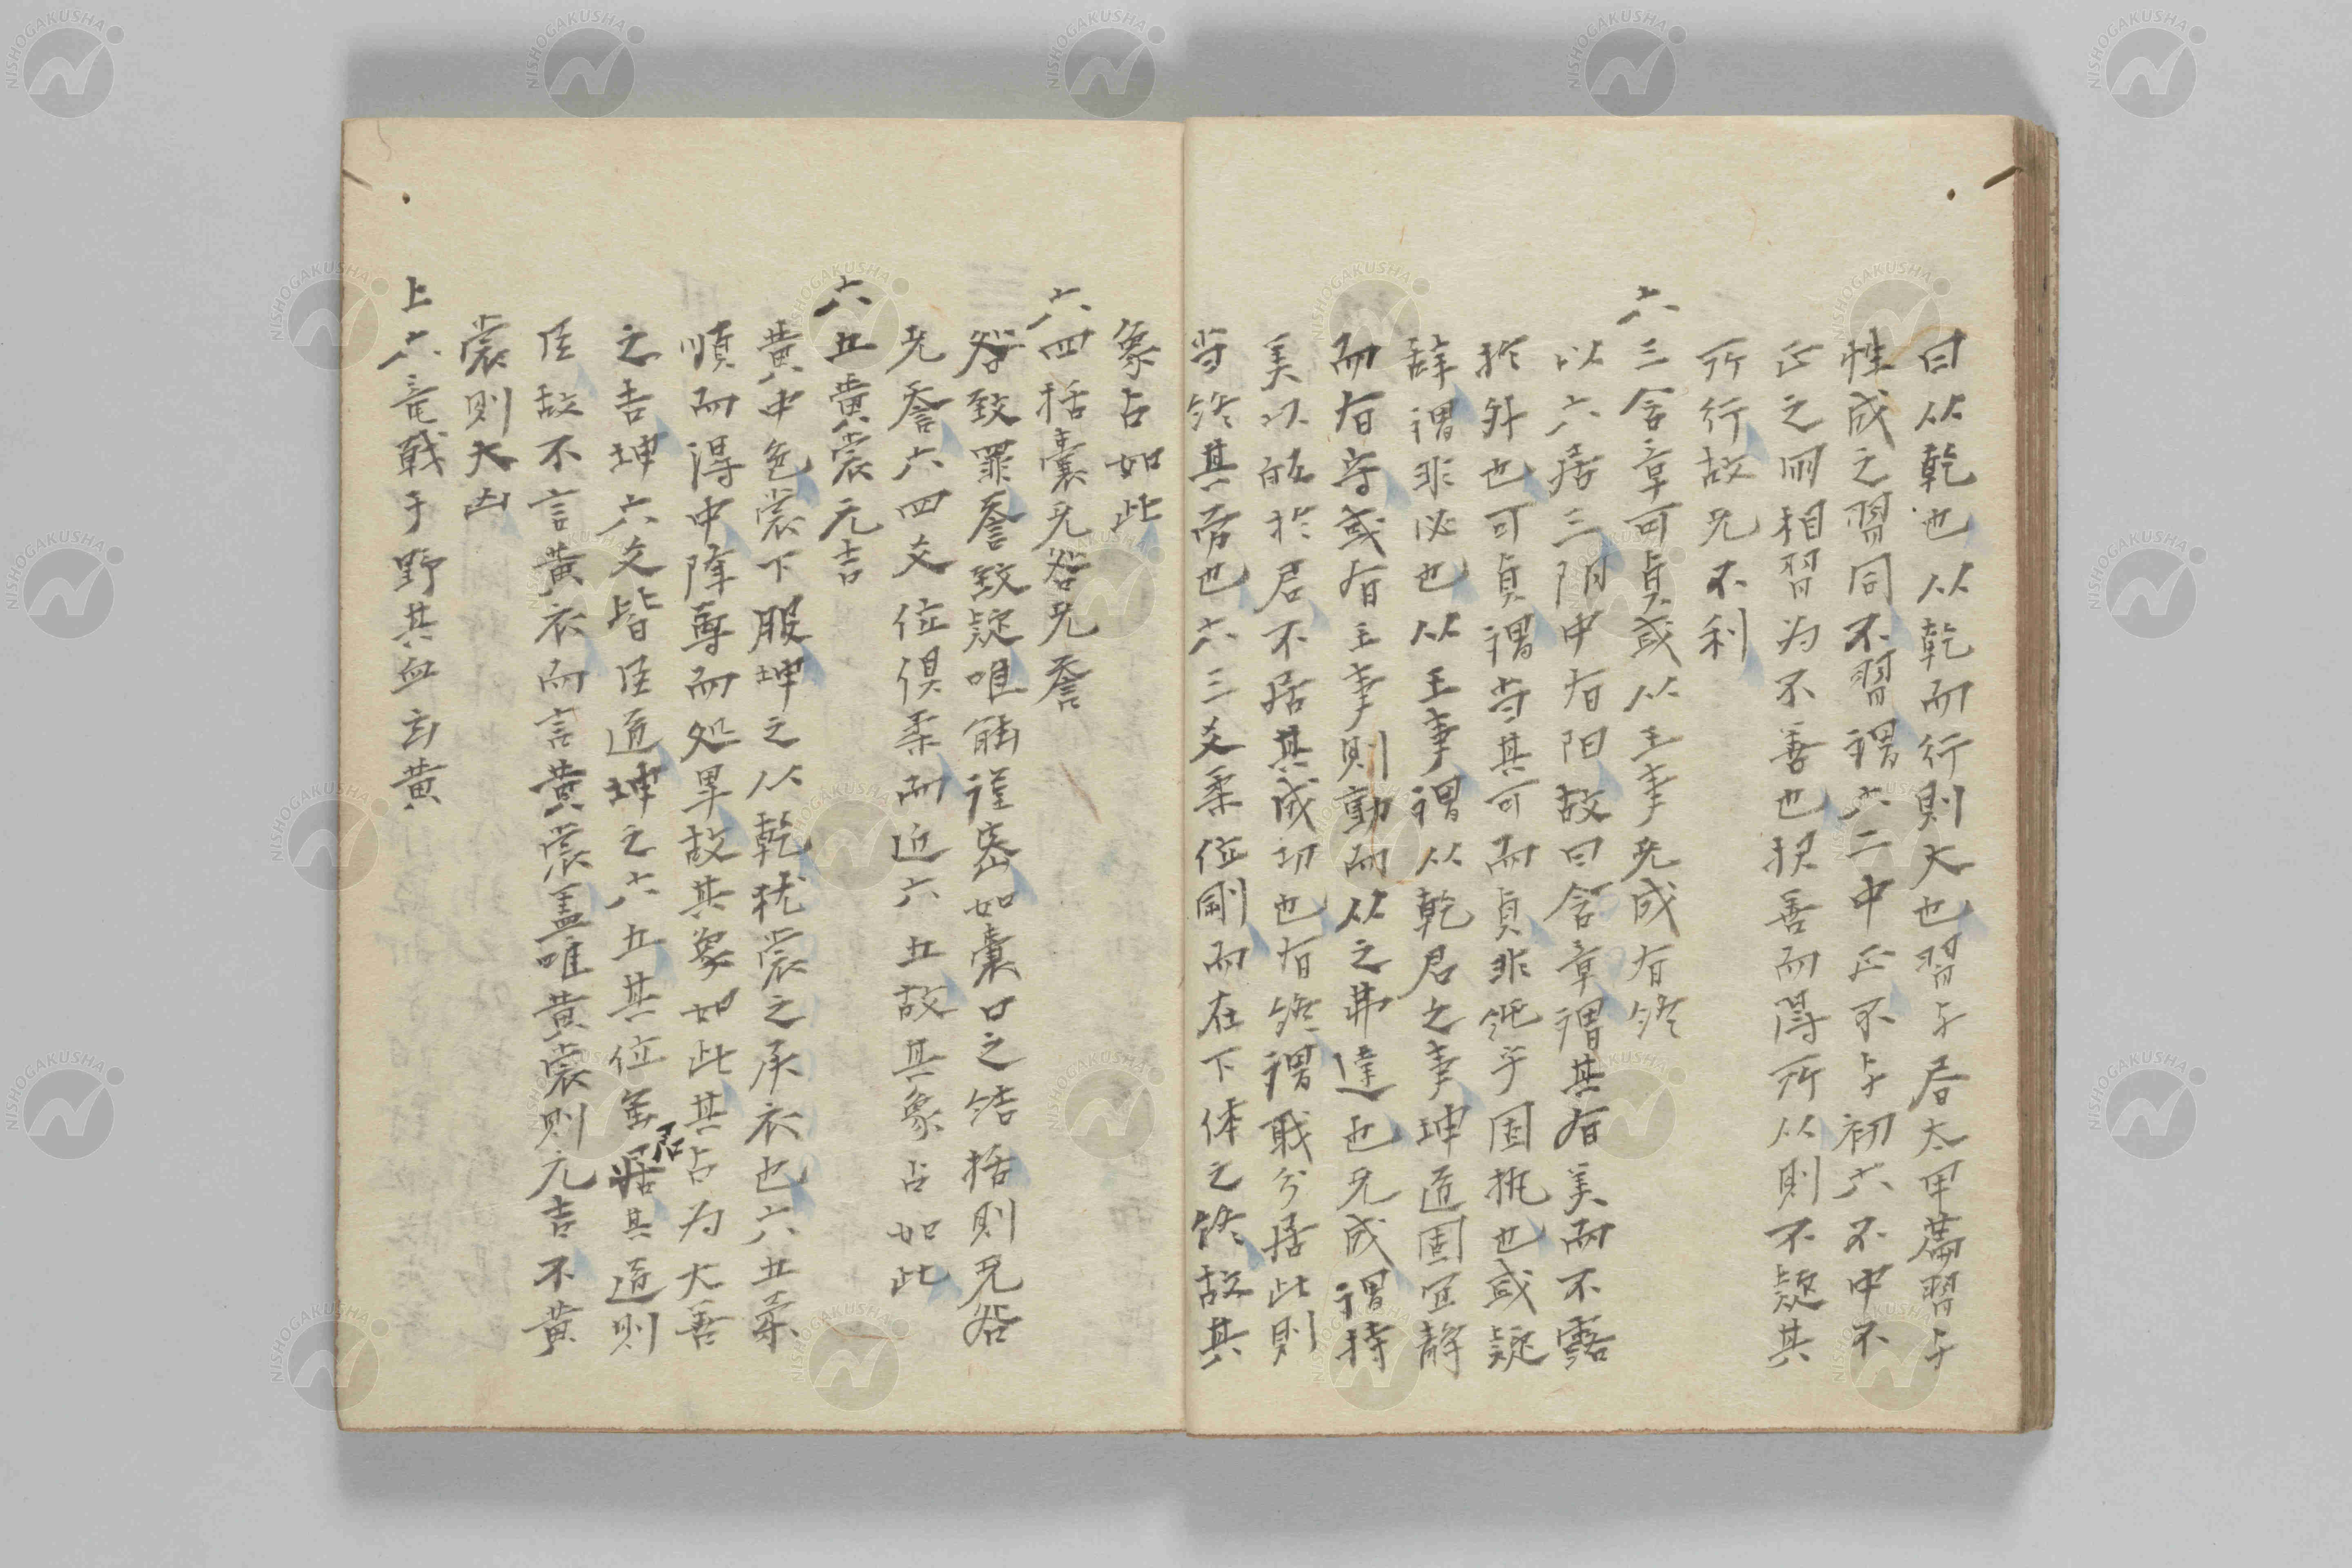 曰从乾也从乾而行則大也習与居太甲萹習与
性成之習同不習謂六二中正不与初六不中不
正之同相習为不善也択善而得所从則不疑其
所行故无不利
六三含章可貞或从王事无成有終
以六居三阴中有阳故曰含章謂其有美而不露
於外也可貞謂当其可而貞非純乎固执也或疑
辞謂非必也从王事謂从乾君之事坤道固宜静
而有守或有王事則動而从之弗違也无成謂持
美以皈於君不居其成功也有終謂戝分居此則
当終其帝也六三爻柔位剛而在下体之終故其
象占如此
六四括囊无咎无誉
咎致罪誉致疑唯能谨密如囊口之结括則无咎
无誉六四爻位俱柔而近六五故其象占如此
六五黄裳元吉
黄中色裳下服坤之从乾犹裳之承衣也六五柔
順而得中降尊而处卑故其象如此其占为大善
之吉坤六爻皆臣道坤之六五其位虽君居其道則
臣故不言黄衣而言黄裳盖唯黄裳則元吉不黄
裳則大凶
上六竜戦于野其血玄黄
NISHOGAKUSHA